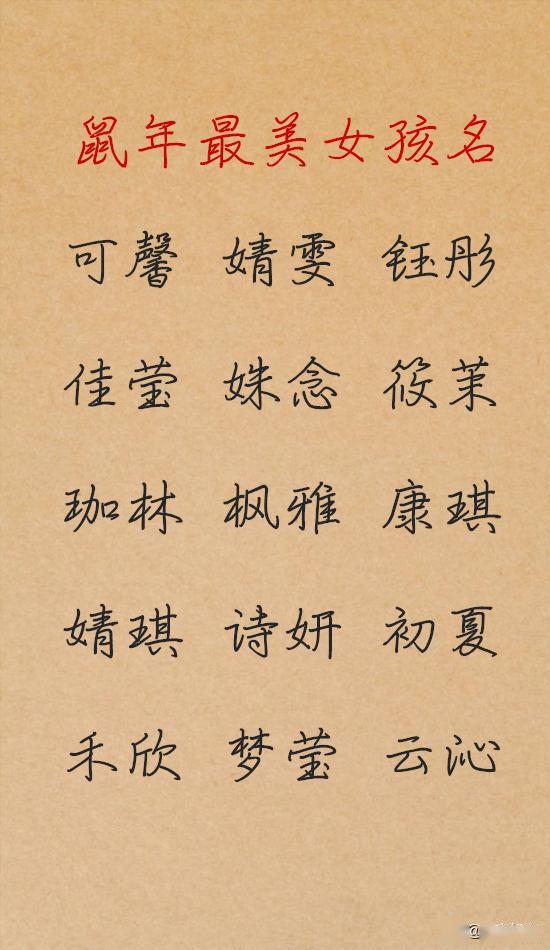 鼠年最美女孩名
可馨 婧雯 钰彤
佳莹 姝念 筱茉
珈林 枫雅 康琪
婧琪 诗妍 初夏
禾欣 梦莹 云沁
@